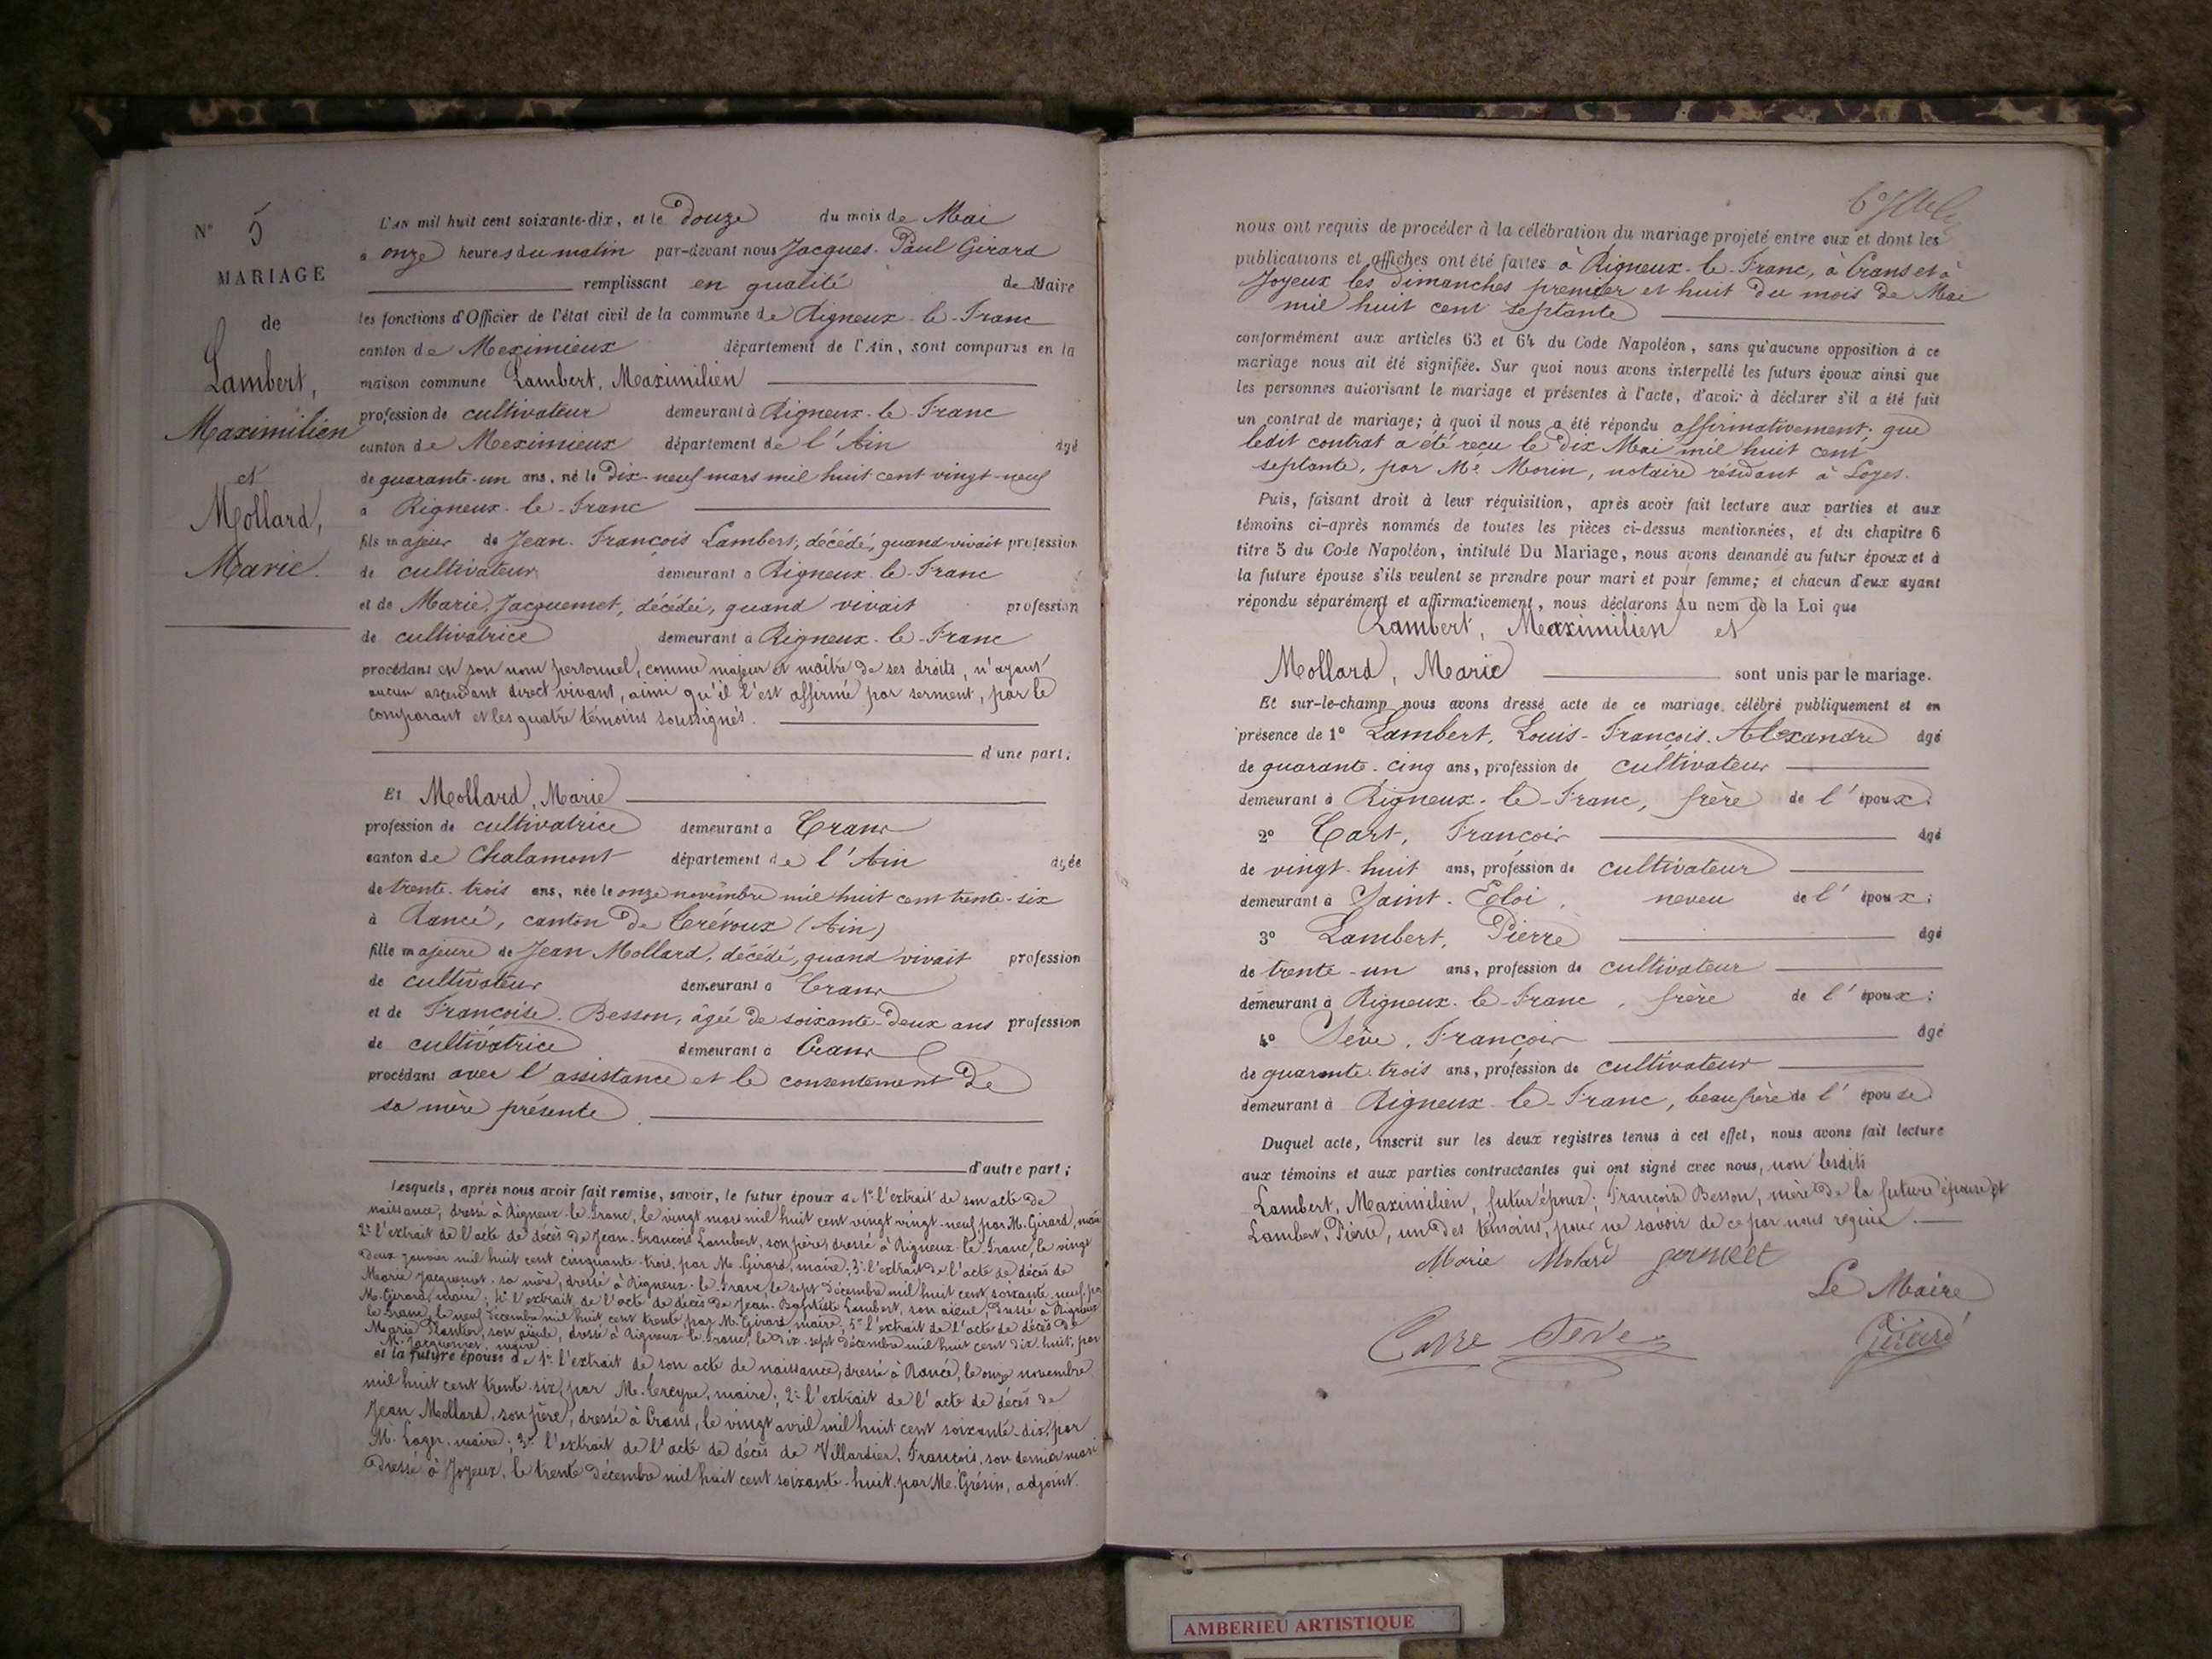 N° 5
MARIAGE
de
Lambert,
Maximilien
et
Mollard,
Marie.
L'AN mil huit cent soixante-dix, et le Douze du mois de Mai
à onze heures du matin par-devant nous Jacques-Paul Girard
remplissant en qualité de Maire
les fonctions d'Officier de l'état civil de la commune de Rigneux-le-Franc
canton de Meximieux département de l'Ain, sont comparus en la
maison commune Lambert, Maximilien
profession de cultivateur demeurant à Rigneux-le-Franc
canton de Meximieux département de l'Ain âgé
de quarante-un ans, né le Dix-neuf mars mil huit cent vingt-neuf
à Rigneux-le-Franc
fils majeur de Jean-François Lambert, décédé, quand vivait profession
de cultivateur demeurant à Rigneux-le-Franc
et de Marie Jacquemet, décédée, quand vivait profession
de cultivatrice demeurant à Rigneux-le-Franc
procédant en son nom personnel, comme majeur et maître de ses droits, n'ayant
aucun ascendant direct vivant, ainsi qu'il l'est affirmé par serment, par le
comparant et les quatre témoins soussignés.
d'une part;
Et Mollard, Marie
profession de cultivatrice demeurant à Crans
canton de Chalamont département de l'Ain âgée
de trente-trois ans, née le onze novembre mil huit cent trente-six
à Rancé, canton de Trévoux (Ain)
fille majeure de Jean Mollard, décédé, quand vivait profession
de cultivateur demeurant à Crans
et de Françoise Besson, âgée de soixante-deux ans profession
de cultivatrice demeurant à Crans
procédant avec l'assistance et le consentement de
sa mère présente.
d'autre part;
Lesquels, après nous avoir fait remise, savoir, le futur époux de 1° l'extrait de son acte de
naissance, dressé à Rigneux-le-Franc, le vingt mars mil huit cent vingt vingt-neuf par M. Girard, maire
2° l'extrait de l'acte de décès de Jean-François Lambert, son père, dressé à Rigneux-le-Franc, le vingt
deux janvier mil huit cent cinquante-trois, par M. Girard, maire; 3° l'extrait de l'acte de décès de
Marie Jacquemet, sa mère, dressé à Rigneux-le-Franc, le sept décembre mil huit cent soixante-neuf, par
M. Girard, maire; 4° l'extrait de l'acte de décès de Jean-Baptiste Lambert, son aïeul, dressé à Rigneux
le Franc, le neuf décembre mil huit cent trente par M. Girard, maire; 5° l'extrait de l'acte de décès de
Marie son aïeule, dressé à Rigneux-le-Franc, le dix-sept décembre mil huit cent dix-huit, par
M. Jacquemet, maire
et la future épouse de 1° l'extrait de son acte de naissance, dressé à Rancé, le onze novembre
mil huit cent trente-six, par M. maire; 2° l'extrait de l'acte de décès de
Jean Mollard, son père, dressé à Crans, le vingt avril mil huit cent soixante-dix, par
M. Loger, maire; 3° l'extrait de l'acte de décès de Villardier, François, son dernier mari
dressé à Joyeux, le trente décembre mil huit cent soixante-huit, par M. Grésin, adjoint.
nous ont requis de procéder à la célébration du mariage projeté entre eux et dont les
publications et affiches ont été faites à Rigneux-le-Franc, à Crans et à
Joyeux les Dimanches premier et huit du mois de Mai
mil huit cent septante
conformément aux articles 63 et 64 du Code Napoléon, sans qu'aucune opposition à ce
mariage nous ait été signifiée. Sur quoi nous avons interpellé les futurs époux ainsi que
les personnes autorisant le mariage et présentes à l'acte, d'avoir à déclarer s'il a été fait
un contrat de mariage; à quoi il nous a été répondu affirmativement; que
ledit contrat a été reçu le Dix Mai mil huit cent
septante, par Me Morin, notaire résidant à Loyes.
Puis, faisant droit à leur réquisition, après avoir fait lecture aux parties et aux
témoins ci-après nommés de toutes les pièces ci-dessus mentionnées, et du chapitre 6
titre 5 du Code Napoléon, intitulé Du Mariage, nous avons demandé au futur époux et à
la future épouse s'ils veulent se prendre pour mari et pour femme; et chacun d'eux ayant
répondu séparément et affirmativement, nous déclarons au nom de la Loi que
Lambert, Maximilien et
Mollard, Marie sont unis par le mariage.
Et sur-le-champ nous avons dressé acte de ce mariage célébré publiquement et en
présence de 1° Lambert, Louis-François-Alexandre âgé
de quarante-cinq ans, profession de cultivateur
demeurant à Rigneux-le-Franc, frère de l'époux;
2° Cart, François âgé
de vingt-huit ans, profession de cultivateur
demeurant à Saint-Eloi, neveu de l'époux;
3° Lambert, Pierre âgé
de trente-un ans, profession de cultivateur
demeurant à Rigneux-le-Franc, frère de l'époux;
4° Sève, François âgé
de quarante-trois ans, profession de cultivateur
demeurant à Rigneux-le-Franc, beau frère de l'épouse
Duquel acte, inscrit sur les deux registres tenus à cet effet, nous avons fait lecture
aux témoins et aux parties contractantes qui ont signé avec nous, non lesdits
Lambert, Maximilien, futur époux; Françoise Besson, mère de la future épouse et
Lambert, Pierre, un des témoins, pour ne savoir de ce par nous requis.
Marie Molard
Le Maire
Seve
Girard
AMBERIEU ARTISTIQUE